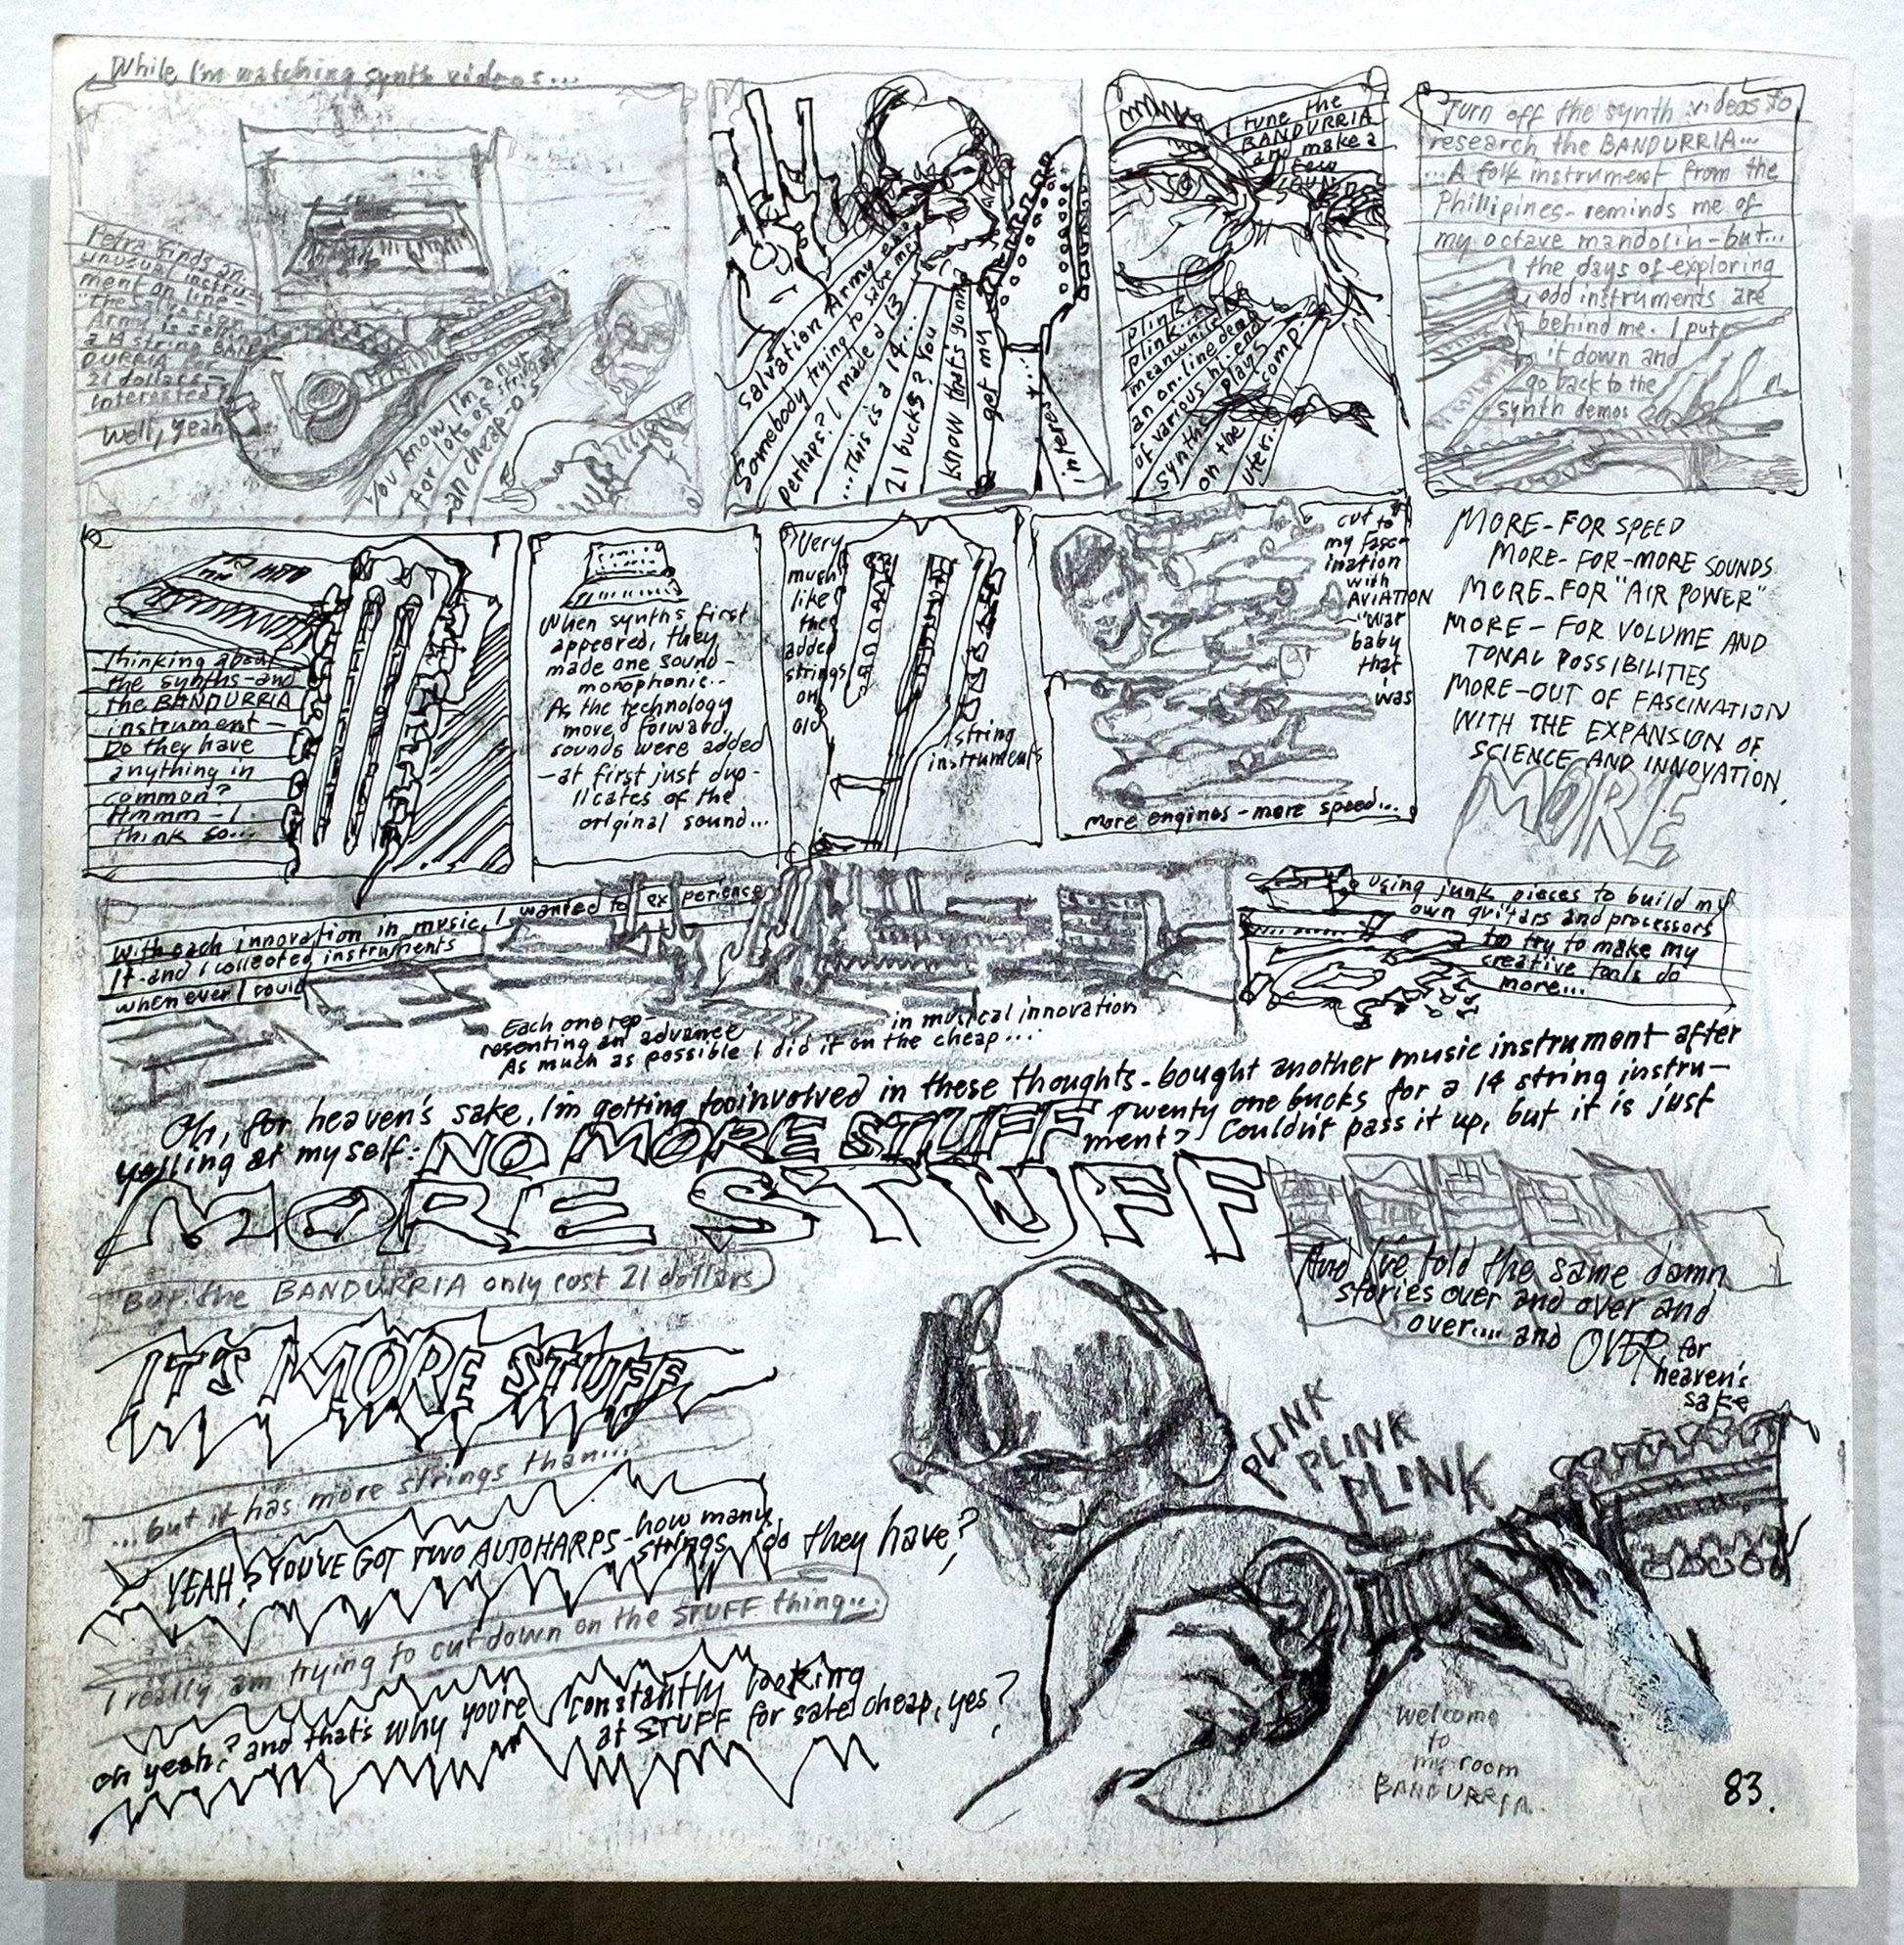 While I'm watching synth videos...
Petra finds an
unusual instru-
ment on line-
"the Salvation
Army is selling
a 14 string BAN
DURRIA for
21 dollars-
interested?
Well, yeah
You know I'm a nut
for lots of strings
an cheap-os
Salvation Army eh?
Somebody trying to save me
perhaps? I made a 13
...This is a 14...
21 bucks? You
know that's going
get my
interest...
I tune the
BANDURRIA
and make a
few
plink...
plink...
meanwhile
an on-line demo
of various hi-end
synths plays
on the comp-
uter.
Turn off the synth videos to
research the BANDURRIA...
...A folk instrument from the
Phillipines- reminds me of
my octave mandolin-but...
the days of exploring
odd instruments are
behind me. I put
it down and
go back to the
synth demos
Thinking about
the synths-and
the BANDURRIA
instrument-
Do they have
anything in
common?
Hmmm-I
think so...
When synths first
appeared, they
made one sound-
monophonic..
As the technology
moved forward,
sounds were added
-at first just dup-
licates of the
original sound...
Very
much
like
the
added
strings
on
old
string
instruments
cut to
my fasc-
ination
with
AVIATION
-"war
baby
that
I
was
more engines - more speed...
MORE-FOR SPEED
MORE-FOR-MORE SOUNDS
MORE-FOR "AIR POWER"
MORE- FOR VOLUME AND
TONAL POSSIBILITIES
MORE-OUT OF FASCINATION
WITH THE EXPANSION OF
SCIENCE AND INNOVATION.
MORE
With each innovation in music, I wanted to experience
it-and I collected instruments
whenever I could
Each one rep-
resenting an advance
in musical innovation
As much as possible I did it on the cheap...
Using junk pieces to build my
own guitars and processors
to try to make my
creative tools do
more...
Oh, for heaven's sake, I'm getting too involved in these thoughts-bought another music instrument after
yelling at myself: NO MORE STUFF
Twenty one bucks for a 14 string instru-
ment? Couldn't pass it up, but it is just
MORE STUFF
But the BANDURRIA only cost 21 dollars
IT'S MORE STUFF
And I've told the same damn
stories over and over and
over.... and OVER for
heaven's
sake
...but it has more strings than...
YEAH? YOU'VE GOT TWO AUTOHARPS-how many
strings do they have?
I really am trying to cut down on the STUFF thing...
oh yeah? and that's why you're constantly looking
at STUFF for sale cheap, yes?
PLINK
PLINK
PLINK
Welcome
to
my room
BANDURRIA.
83.